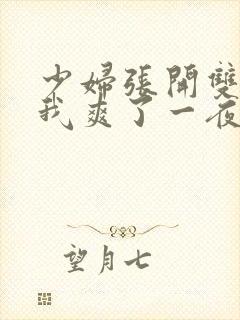 少婦張開雙
我爽了一夜
望月七